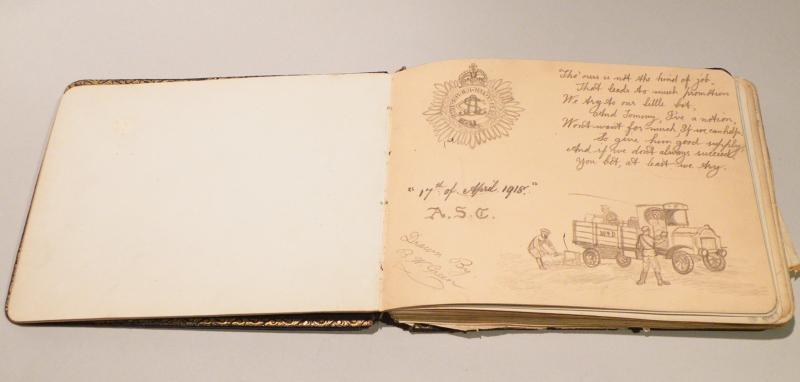 Tho' ours is not the kind of job,
That leads to much promotion
We try to our little bit,
And Tommy, I've a notion,
Won't want for much, if we can help,
To give him good supply,
And if we don't always succeed,
You bet, at least we try.
"17th of April 1918."
A.S.C.
Drawn By